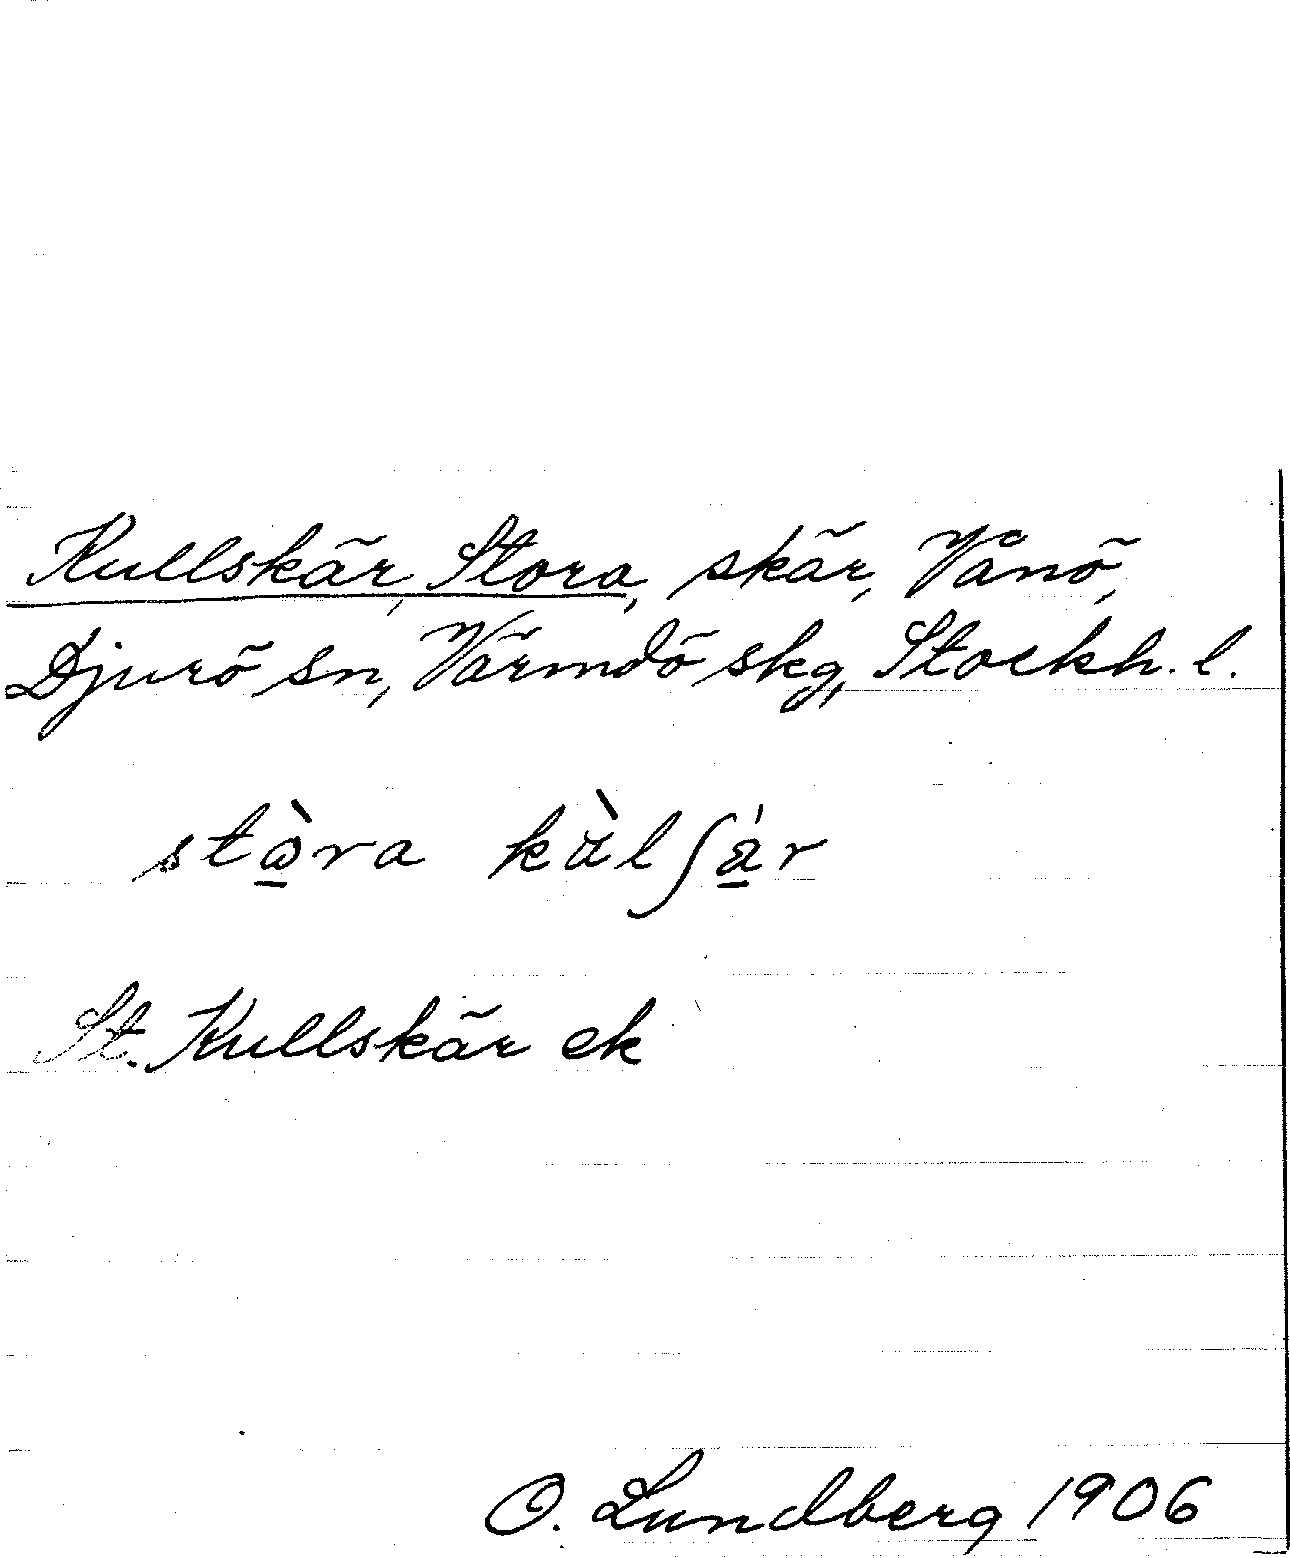 Kullskär, Stora, skär, Vånö,
Djurö sn, Värmdö skg, Stockh. l.
stɷ̠̀ra kὰlʃá̠r
St. Kullskär ek
O. Lundberg 1906